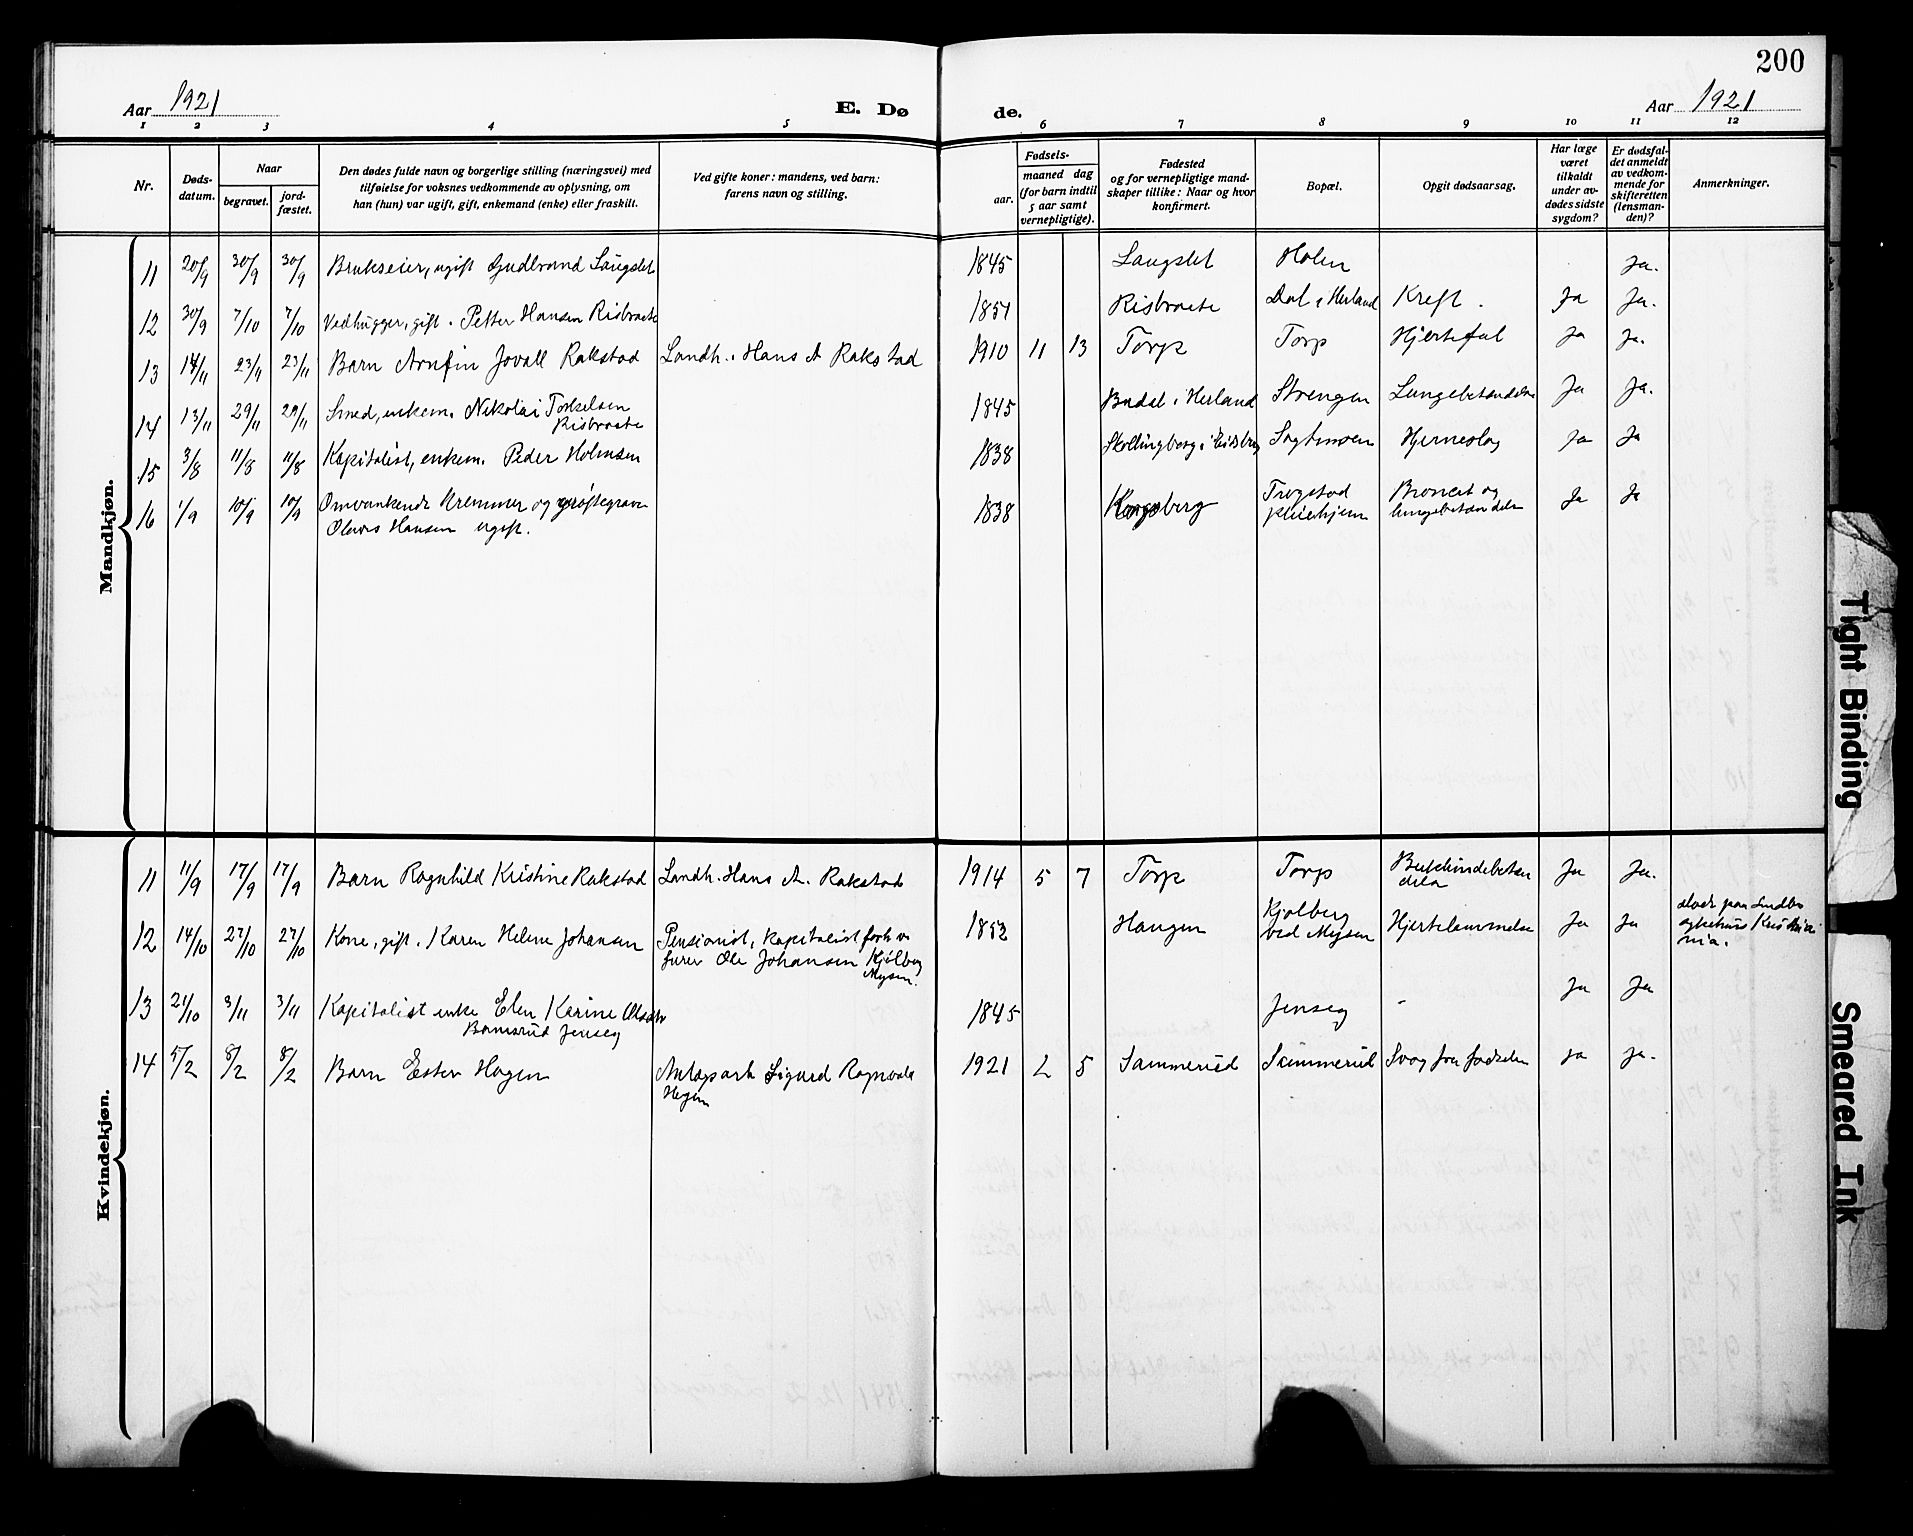 200
Aar 1921
E. Dø
de.
Aar 1921
1 2 3 4 5 6 7 8 9 10 11 12
Nr.
Døds-
datum.
Naar
begravet.
jord-
fæstet.
Den dødes fulde navn og borgerlige stilling (næringsvei) med
tilføielse for voksnes vedkommende av oplysning, om
han (hun) var ugift, gift, enkemand (enke) eller fraskilt.
Ved gifte koner: mandens, ved barn:
farens navn og stilling.
Fødsels-
aar.
maaned dag
(for barn indtil
5 aar samt
vernepligtige).
Fødested
og for vernepligtige mand-
skaper tillike: Naar og hvor
konfirmert.
Bopæl.
Opgit dødsaarsag.
Har læge
været
tilkaldt
under av-
dødes sidste
sygdom?
Er dødsfal-
det anmeldt
av vedkom-
mende for
skifteretten
(lensman-
den)?
Anmerkninger.
Mandkjøn.
11 20/9 30/9 30/9 Brukseier, ugift Gudbrand Laugslet 1845 Laugslet Holen Ja.
12 30/9 7/10 7/10 Vedhugger, gift. Petter Hansen Risbraate 1857 Risbraate Dal i Herland Kreft. Ja Ja.
13 14/11 23/11 23/11 Barn Arnfin Jovall Rakstad Landh. Hans A Rakstad 1910 11 13 Torp Torp Hjertefeil Ja Ja.
14 13/11 29/11 29/11 Smed, enkem. Nikolai Torkelsen
Risbraate 1845 Budal i Herland Strengen Lungebetændelse Ja Ja.
15 3/8 11/8 11/8 Kapitalist, enkem. Peder Holmsen 1838 Skollingberg i Eidsberg Hjerneslag Ja Ja
16 1/9 10/9 10/9 Omvankende Kremmer og grøftegraver
Olaves Hansen ugift. 1838 Kongsberg Trøgstad
pleiehjem Bronkit og
lungebetændelse Ja Ja
Kvindekjøn.
11 11/9 17/9 17/9 Barn Ragnhild Kristine Rakstad Landh. Hans A. Rakstad 1914 5 7 Torp Torp Bukhindebetæn
delse Ja Ja.
12 14/10 27/10 27/10 Kone, gift. Karen Helene Johansen Pensionist, kapitalist forh v
furer Ole Johansen Kjølberg
Mysen. 1852 Haugen Kjølberg
ved Mysen Hjertelammelse Ja Ja døde paa
sykehus Kristia
nia.
13 21/10 3/11 3/11 Kapitalist enke Elen Karine Olsdtr
Jenseg 1845 Jenseg - Ja Ja
14 5/2 8/2 8/2 Barn Ester Hagen Sigurd Ragnvald
Hagen 1921 2 5 Sammerud Sammerud Svag fra fødselen Ja Ja.
Tight Binding
Smeared Ink